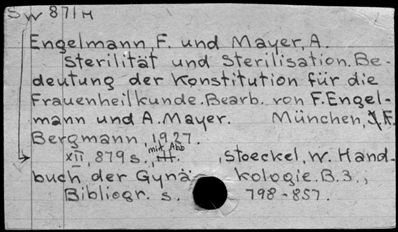 SW 871H
Engelmann, F. und Mayer, A.
Sterilität und Sterilisation. Be-
deutung der Konstitution für die
Frauenheilkunde. Bearb. von F. Engel-
mann und A. Mayer. München, J.F.
Bergmann, 1927.
XII, 879 s., mit Abb., Stoeckel, W. Hand-
buch der Gynä- kologie. B. 3.,
Bibliogr. s. 798-857.